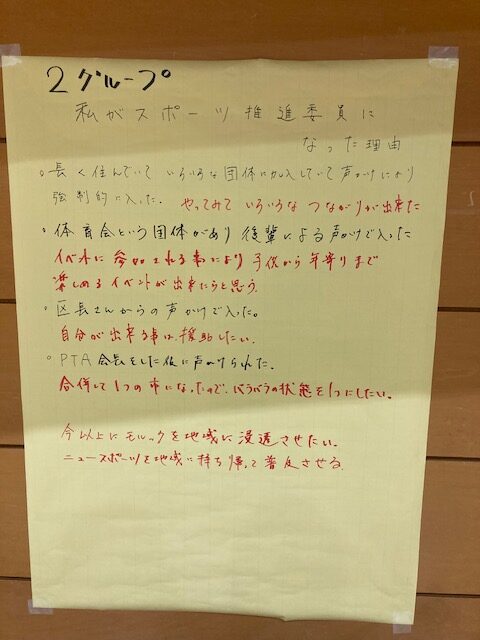 2グループ
私がスポーツ推進委員に
なった理由
○長く住んでいていろいろな団体に加入していて声かけにより
強制的に入った。 やってみていろいろなつながりが出来た
○体育会という団体があり後輩による声がけで入った
イベントに参加される事により子供から年寄りまで
楽しめるイベントが出来たらと思う。
○区長さんからの声かけで入った。
自分が出来る事は、援助したい。
○PTA会長をした後に声かけられた。
合併して1つの市になったので、ばらばらの状態を1つにしたい。
今以上にモルックを地域に浸透させたい。
ニュースポーツを地域に持ち帰って普及させる。